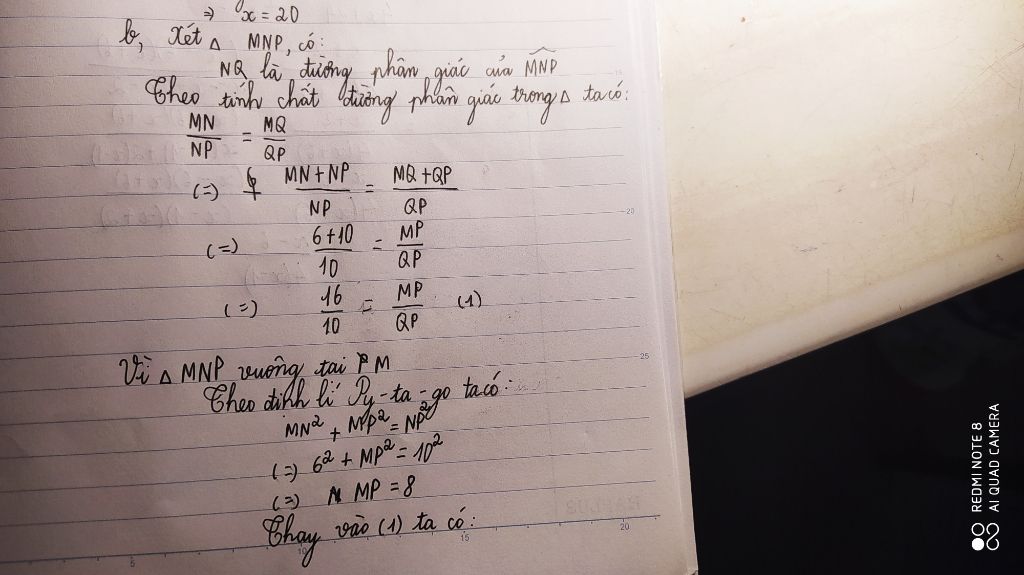 ⇒ x = 20
b, Xét △ MNP, có:
NQ là đường phân giác của MNP
Theo tính chất đường phân giác trong △ ta có:
MN/NP = MQ/QP
(=) MN+NP/NP = MQ+QP/QP
(=) 6+10/10 = MP/QP
(=) 16/10 = MP/QP (1)
Vì △ MNP vuông tại M
Theo định lí Py-ta-go ta có:
MN² + MP² = NP²
(=) 6² + MP² = 10²
(=) MP = 8
Thay vào (1) ta có:
20
25
5
10
15
20
REDMI NOTE 8
AI QUAD CAMERA